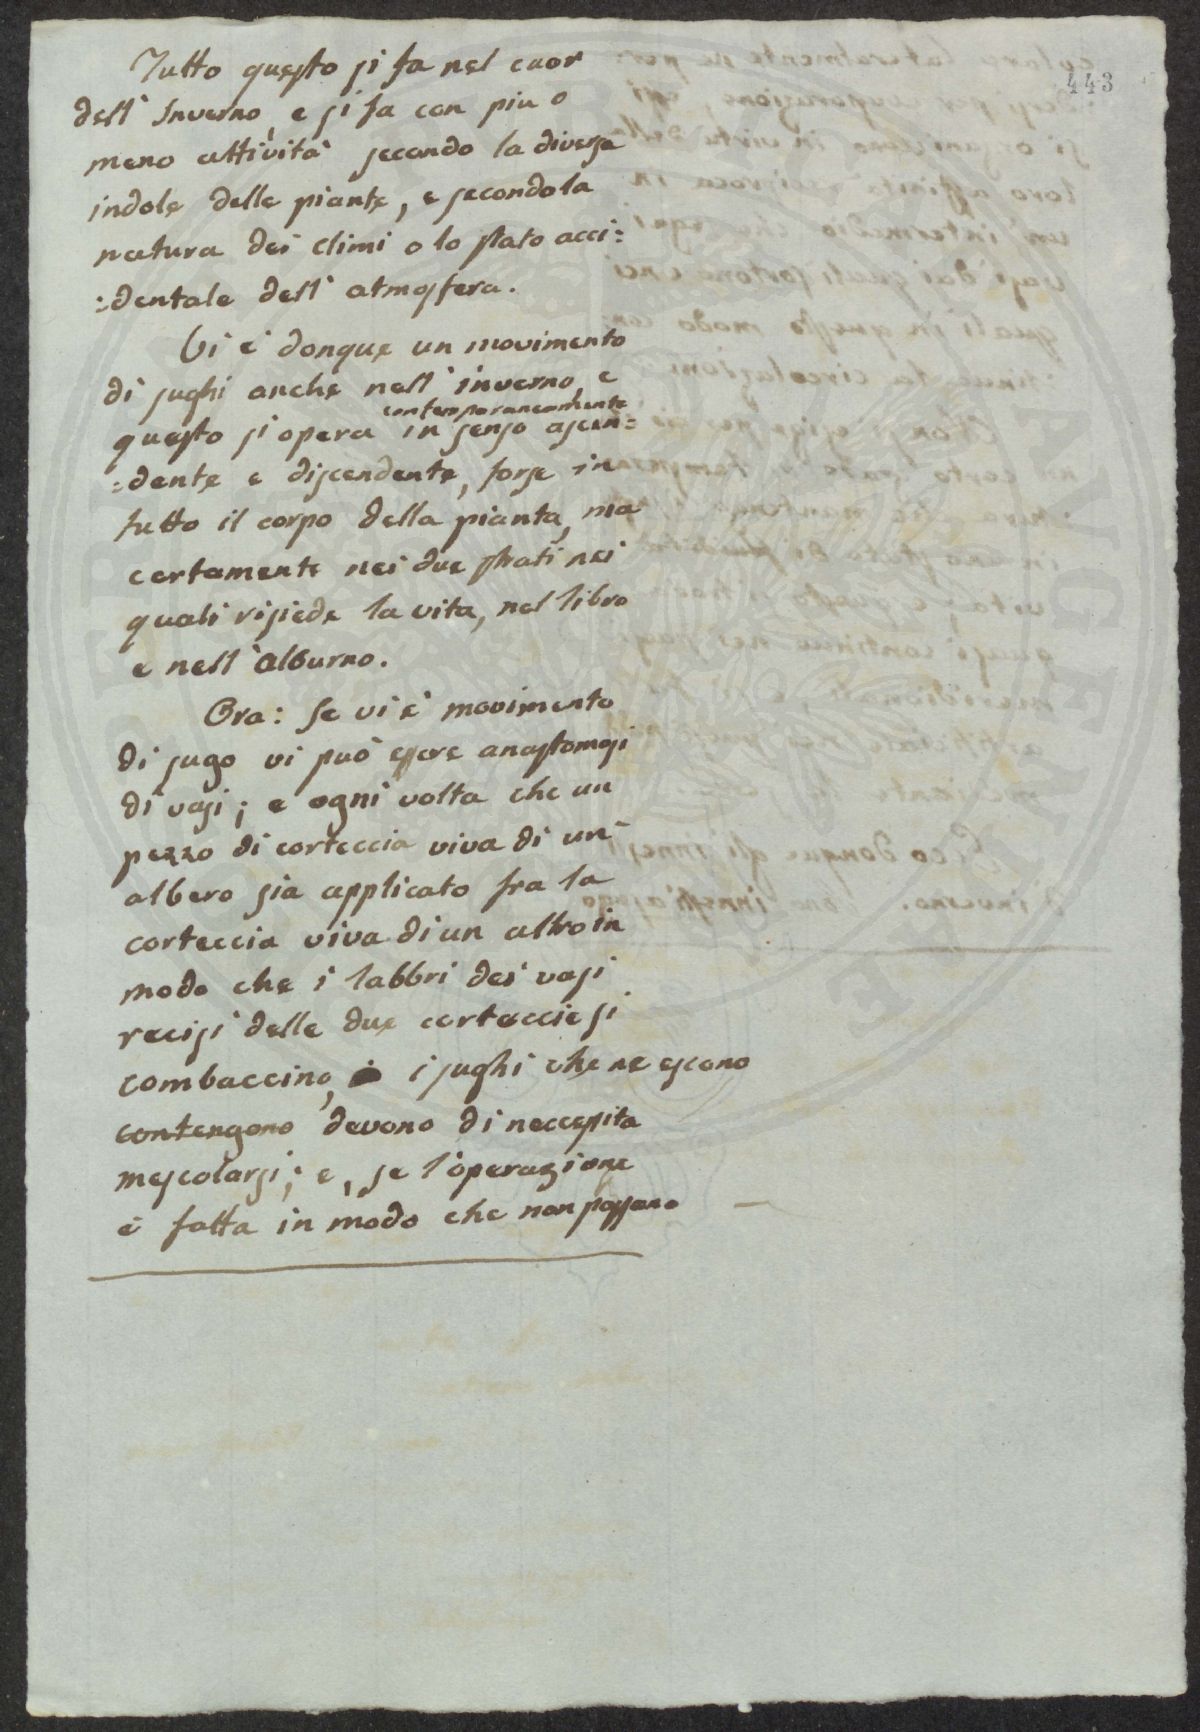 443
Tutto questo si fa nel cuor
dell'Inverno, e si fa con piu o
meno attività secondo la diversa
indole delle piante, e secondo la
natura dei climi o lo stato acci:
:dentale dell'atmosfera.
Vi è donque un movimento
di sughi anche nell'inverno, e
contemporaneamente
questo si opera in senso ascen:
:dente e discendente, forse in
tutto il corpo della pianta, ma
certamente nei due strati nei
quali risiede la vita, nel libro
e nell'alburno.
Ora: se vi è movimento
di sugo vi può essere anastomosi
di vasi; e ogni volta che un
pezzo di corteccia viva di un'
albero sia applicato fra la
corteccia viva di un altro in
modo che i labbri dei vasi
recisi delle due corteccie si
combaccino, i sughi che ne escono
contengono devono di neccessita
mescolarsi; e, se l'operazione
è fatta in modo che non possano